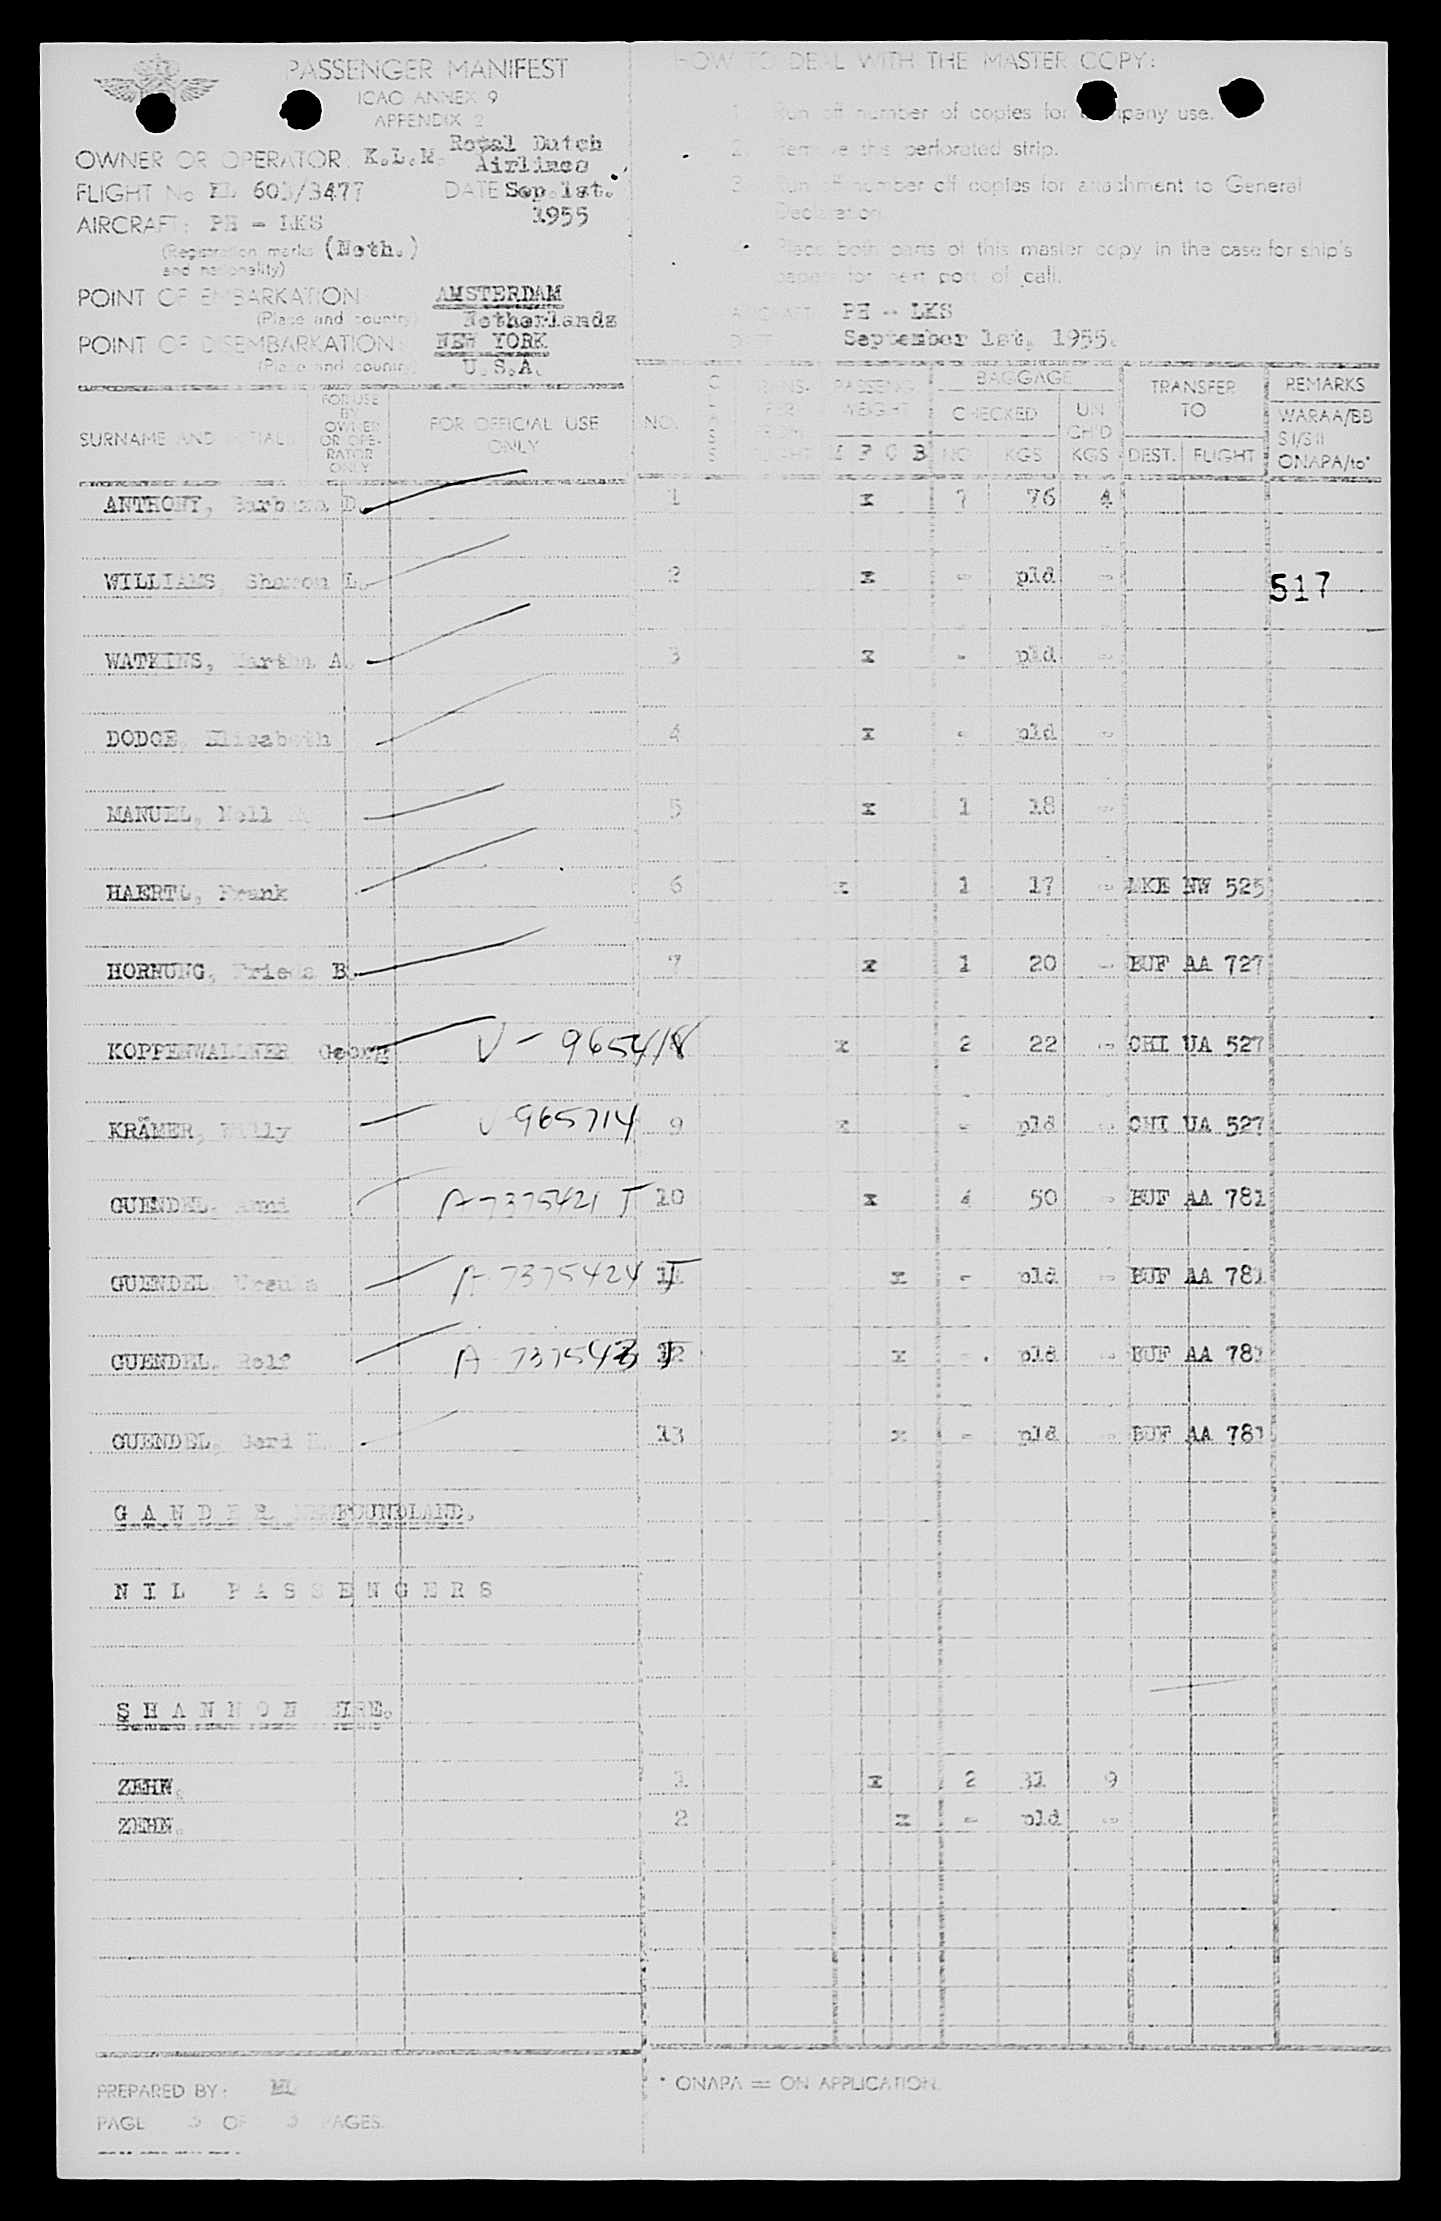 PASSENGER MANIFEST
ICAO ANNEX 9
APPENDIX 2
OWNER OR OPERATOR: K.L.M. Royal Dutch
Airlines
FLIGHT No KL 603/3477 DATE Sep. 1st.
1955
AIRCRAFT: PH - LKS
(Registration marks (Neth.)
and nationality)
POINT OF EMBARKATION AMSTERDAM
(Place and country) Netherlands
POINT OF DISEMBARKATION: NEW YORK
(Place and country) U.S.A.
SURNAME AND INITIALS
FOR USE
BY
OWNER
OR OPE-
RATOR
ONLY
FOR OFFICIAL USE
ONLY
HOW TO DEAL WITH THE MASTER COPY:
1. Run off number of copies for company use.
2. Remove this perforated strip.
3. Run off number off copies for attachment to General
Declaration
4. Place both parts of this master copy in the case for ship's
papers for next port of call.
AIRCRAFT PH - LKS
DATE September 1st, 1955.
NO. CLASS TRANS- PASSENG. BAGGAGE TRANSFER REMARKS
FER WEIGHT CHECKED UN TO WARAA/BB
CH'D SI/SII
FLIGHT M F C B NO KGS KGS DEST. FLIGHT ONAPA/to*
ANTHONY, Barbara D. 1 x 7 76 4
WILLIAMS Sharon L. 2 x - pld - 517
WATKINS, Martha A. 3 x - pld -
DODGE, Elisabeth 4 x - pld -
MANUEL, Nell 5 x 1 18 -
HAERTL, Frank 6 x 1 17 - MKE NW 525
HORNUNG, Frieda B. 7 x 1 20 - BUF AA 727
KOPPENWALLNER Georg V - 965418 x 2 22 - CHI UA 527
KRÄMER, Willy V 965714 9 x - pld - CHI UA 527
GUENDEL, A-7375421 J 10 x 4 50 - BUF AA 781
GUENDEL Ursula A-7375424 J 11 x - pld - BUF AA 781
GUENDEL, Rolf A-737543 J 12 x - pld - BUF AA 781
GUENDEL, Gerd H. 13 x - pld - BUF AA 781
G A N D E R NEWFOUNDLAND.
N I L P A S S E N G E R S
S H A N N O N EIRE.
ZEHN. 1 x 2 31 9
ZEHN. 2 x - pld -
PREPARED BY:
PAGE 3 OF 3 PAGES.
* ONAPA = ON APPLICATION.